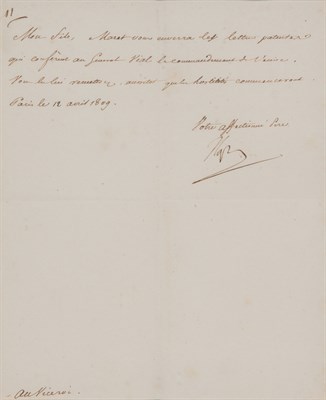 11
Mon Fils, Maret vous enverra les lettres patentes
qui confèrent au Général Vial le commandement de Venise.
Vous les lui remettrez aussitôt que les hostilités commenceront
Paris le 12 avril 1809.
Votre affectionné Père
Nap
au Viceroi